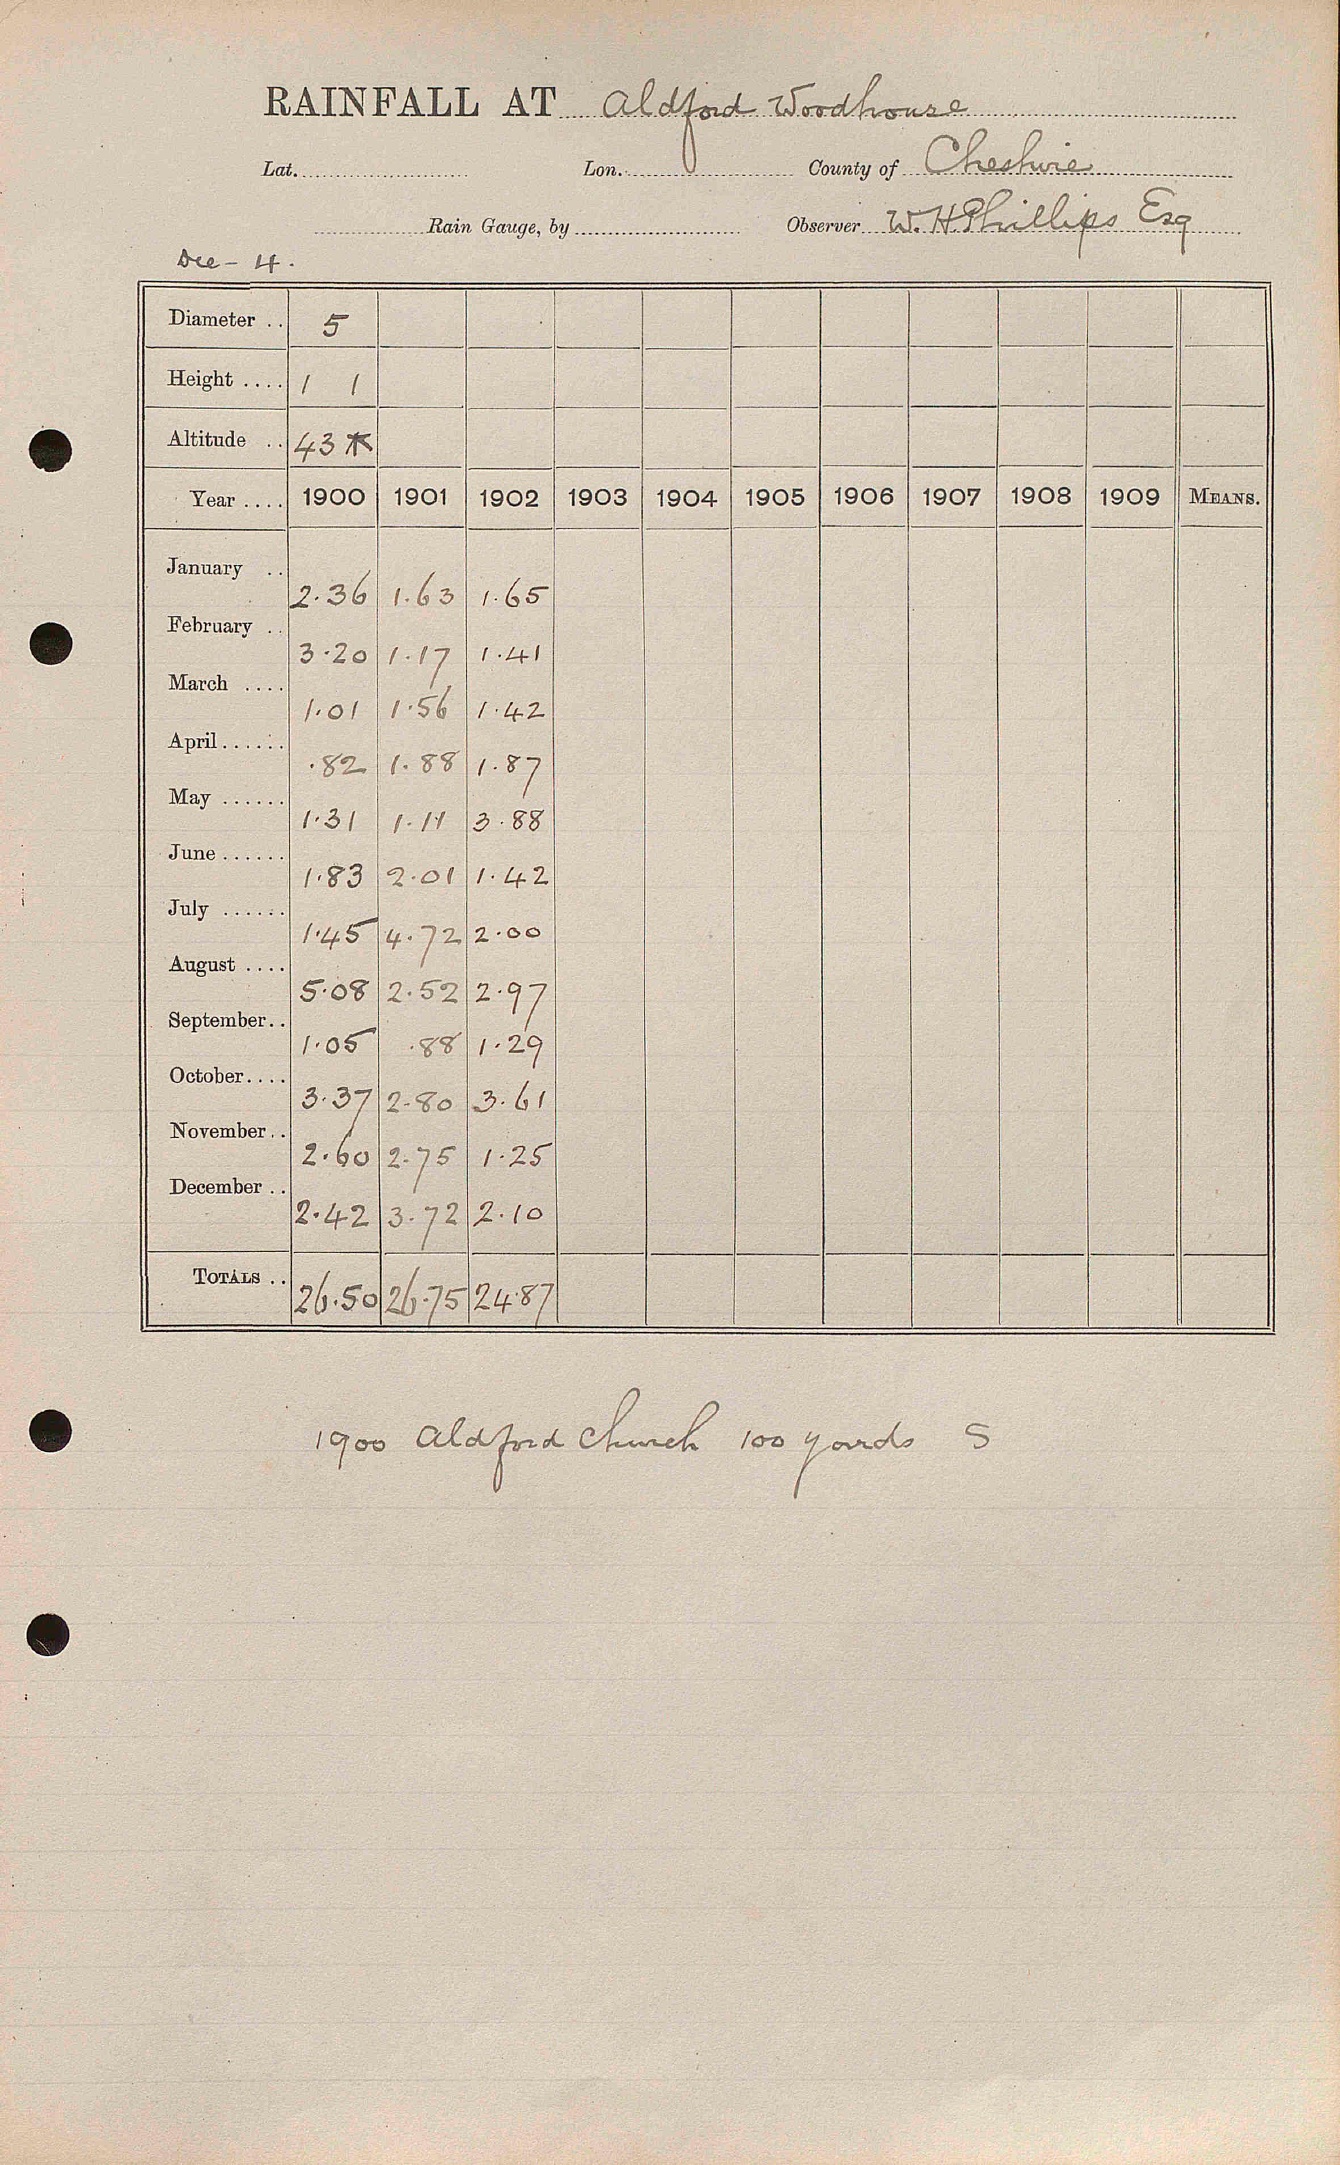 RAINFALL AT Aldford Woodhouse
Lat. Lon. County of Cheshire
Rain Gauge, by Observer W. H. Phillips Esq
Dee - 4.
Diameter .. 5
Height .... 1 1
Altitude .. 43 *
Year .... 1900 1901 1902 1903 1904 1905 1906 1907 1908 1909 MEANS.
January .. 2.36 1.63 1.65
February .. 3.20 1.17 1.41
March .... 1.01 1.56 1.42
April...... .82 1.88 1.87
May ...... 1.31 1.11 3.88
June ...... 1.83 2.01 1.42
July ...... 1.45 4.72 2.00
August .... 5.08 2.52 2.97
September.. 1.05 .88 1.29
October.... 3.37 2.80 3.61
November.. 2.60 2.75 1.25
December .. 2.42 3.72 2.10
TOTALS .. 26.50 26.75 24.87
1900 Aldford Church 100 yards S